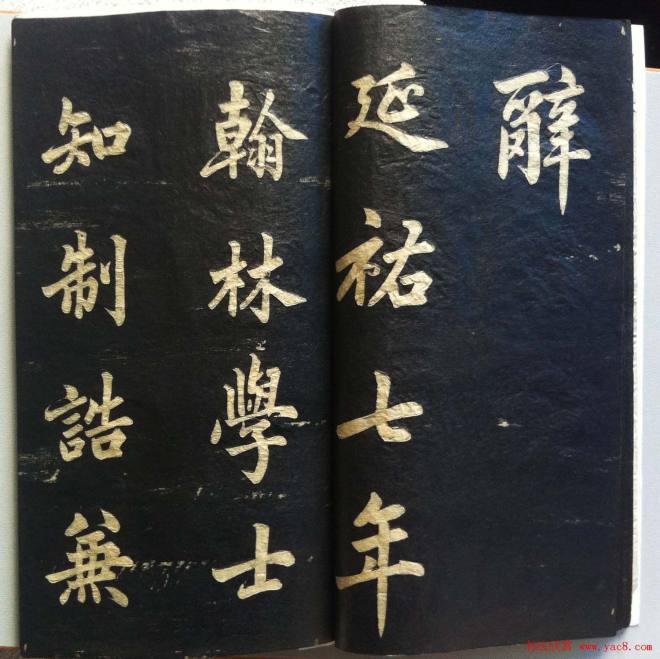 辭
延祐七年
翰林學士
知制誥兼
www.yac8.com